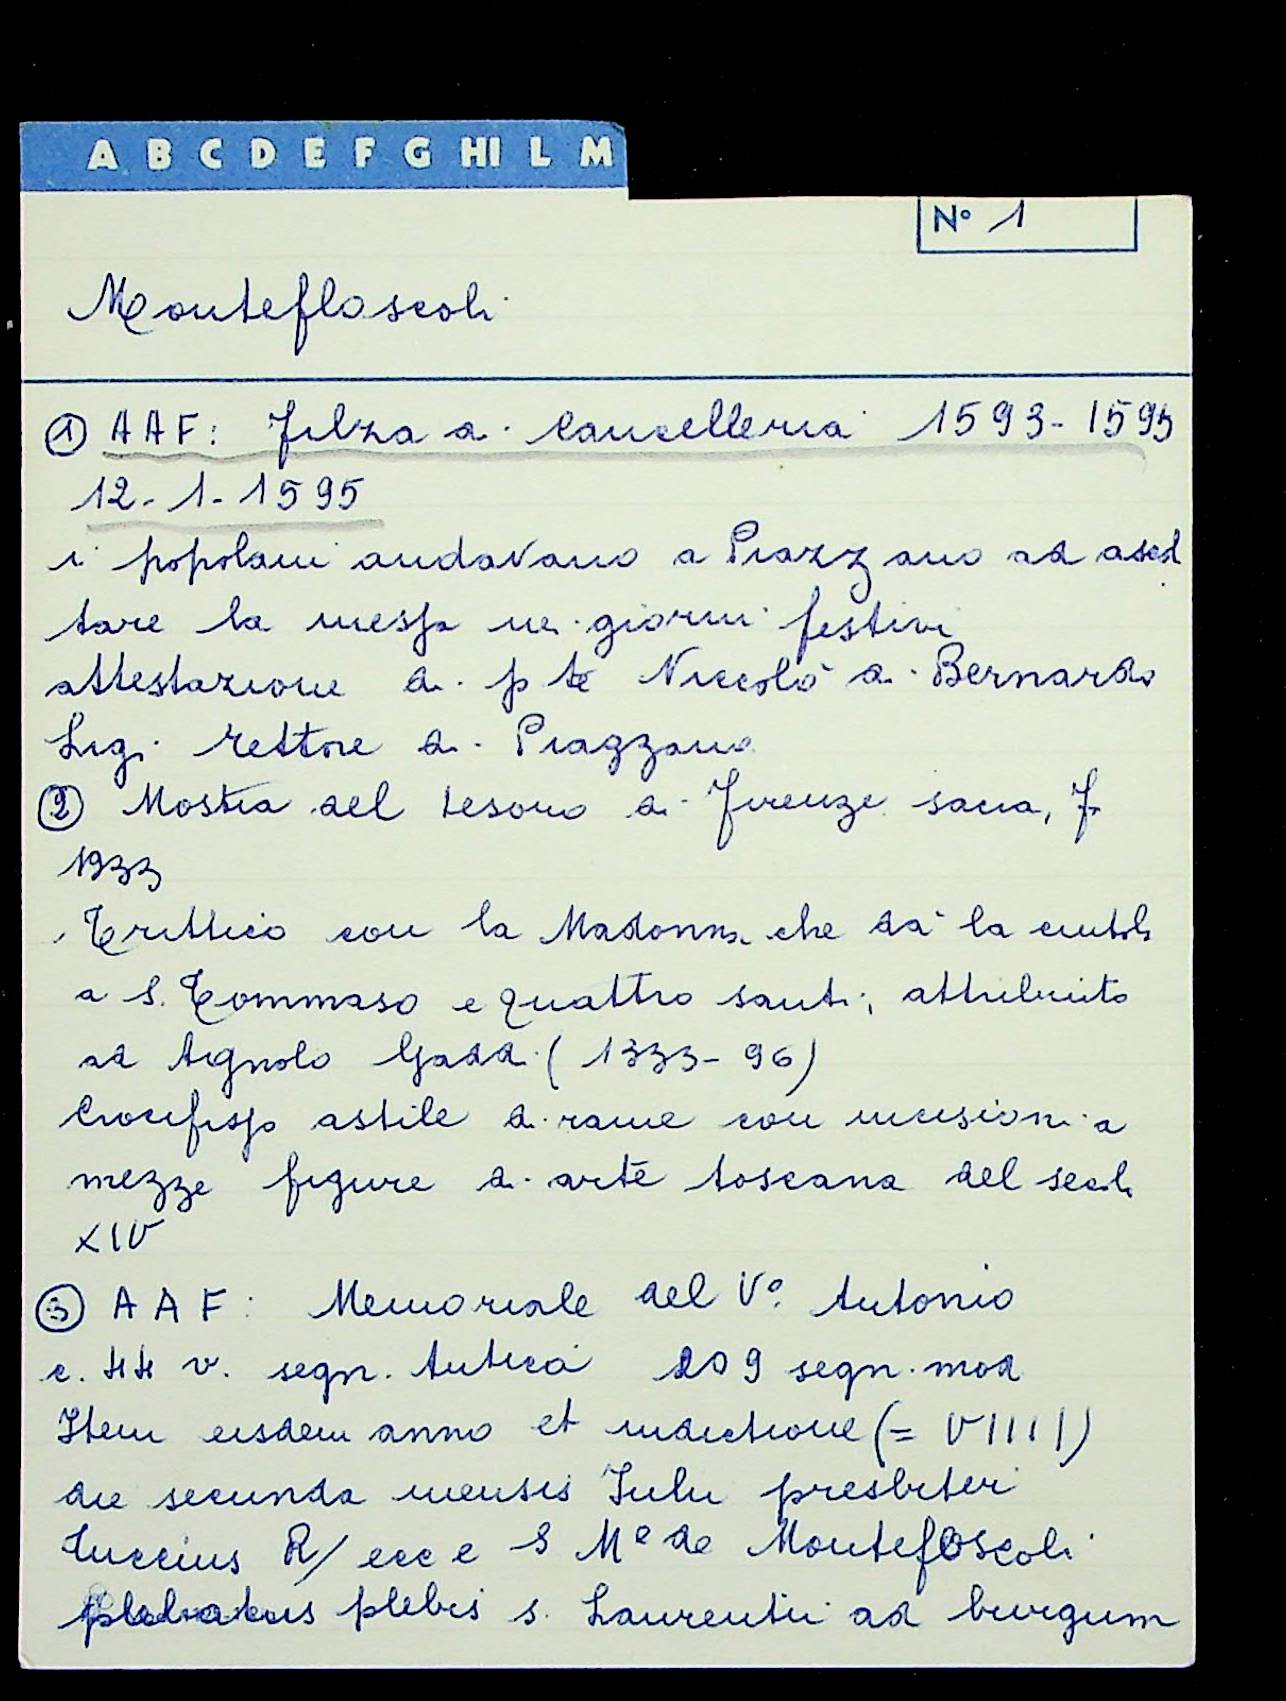 A B C D E F G HI L M
N° 1
Montefloscoli
① AAF: Filza di Cancelleria 1593-1595
12-1-1595
i popolani andavano a Piazzano ad ascol
tare la messa nei giorni festivi
attestazione di p te Niccolò di Bernardo
Ligi rettore di Piazzano
② Mostra del tesoro di Firenze sacra, F.
1933
Trittico con la Madonna che dà la cintola
a S. Tommaso e quattro santi, attribuito
ad Agnolo Gaddi (1333-96)
Crocifisso astile di rame con incisioni a
mezze figure di arte toscana del secolo
XIV
③ AAF: Memoriale del V° Antonio
c. 44 v. segn. Antica 209 segn. mod
Item eisdem anno et indictione (= VIIII)
die secunda mensis Iulii presbiter
Luccius R/ ecc e S Mᵉ de Montefloscoli
plebatus plebis s. Laurentii ad burgum